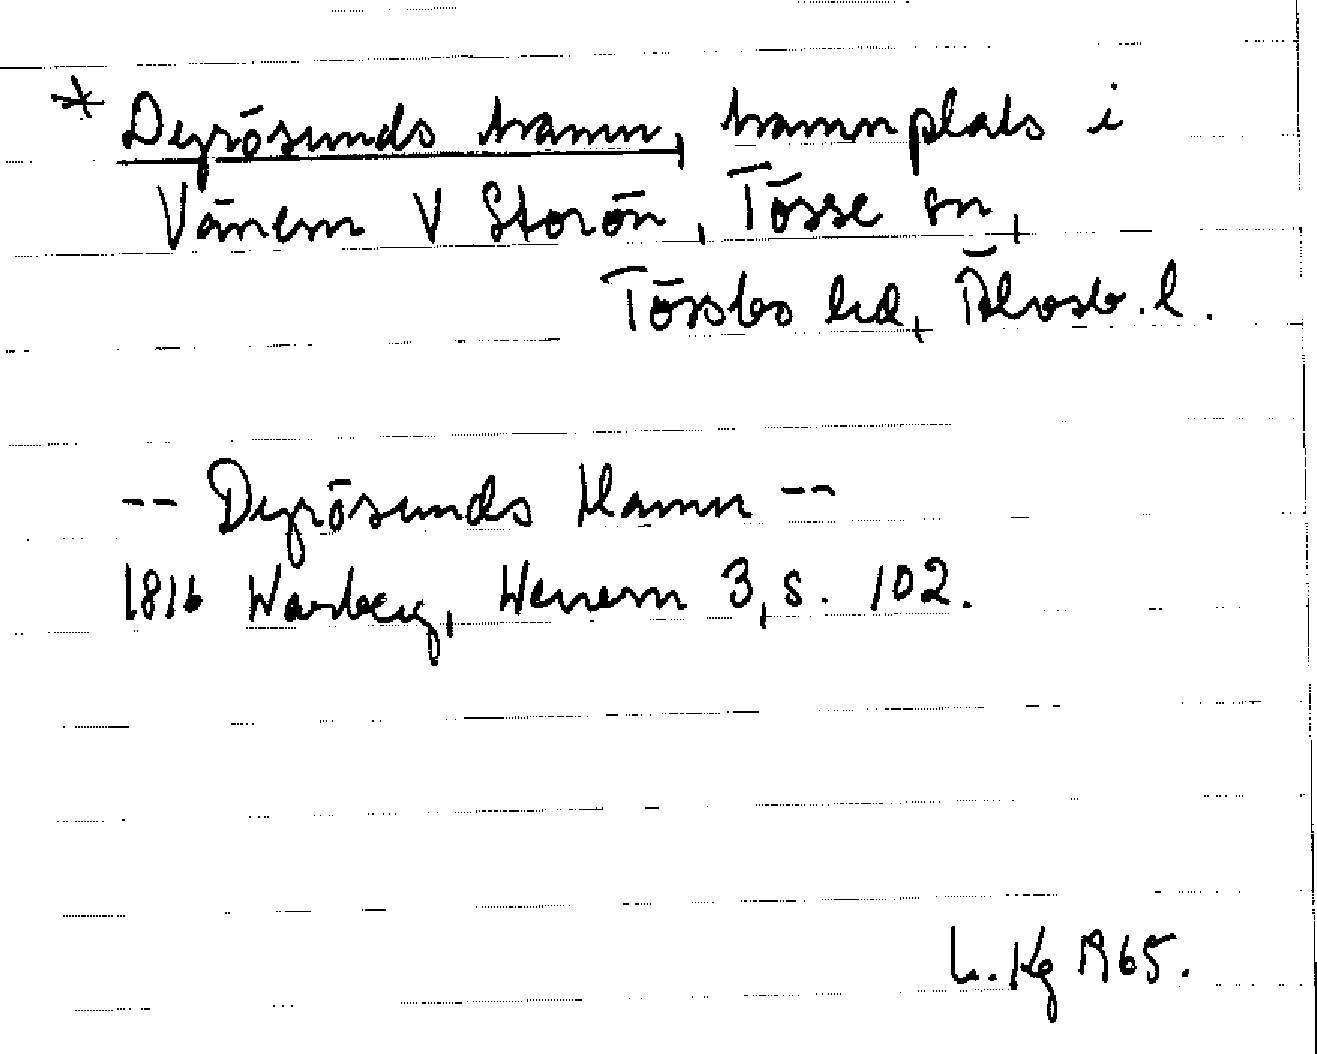 * Dyrösunds hamn, hamnplats i
Vänern V Storön, Tösse sn,
Tössbo hd, Älvsb. l.
-- Dyrösunds Hamn --
1816 Warberg, Wenern 3, s. 102.
L. Kg 1965.